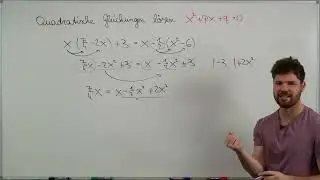 Quadratische Gleichungen lösen x²+px+q=0
x(7/4-2x)+3 = x-1/2(x²-6)
7/4x-2x²+3 = x-1/2x²+3 |-3 |+2x²
7/4x = x-1/2x²+2x²